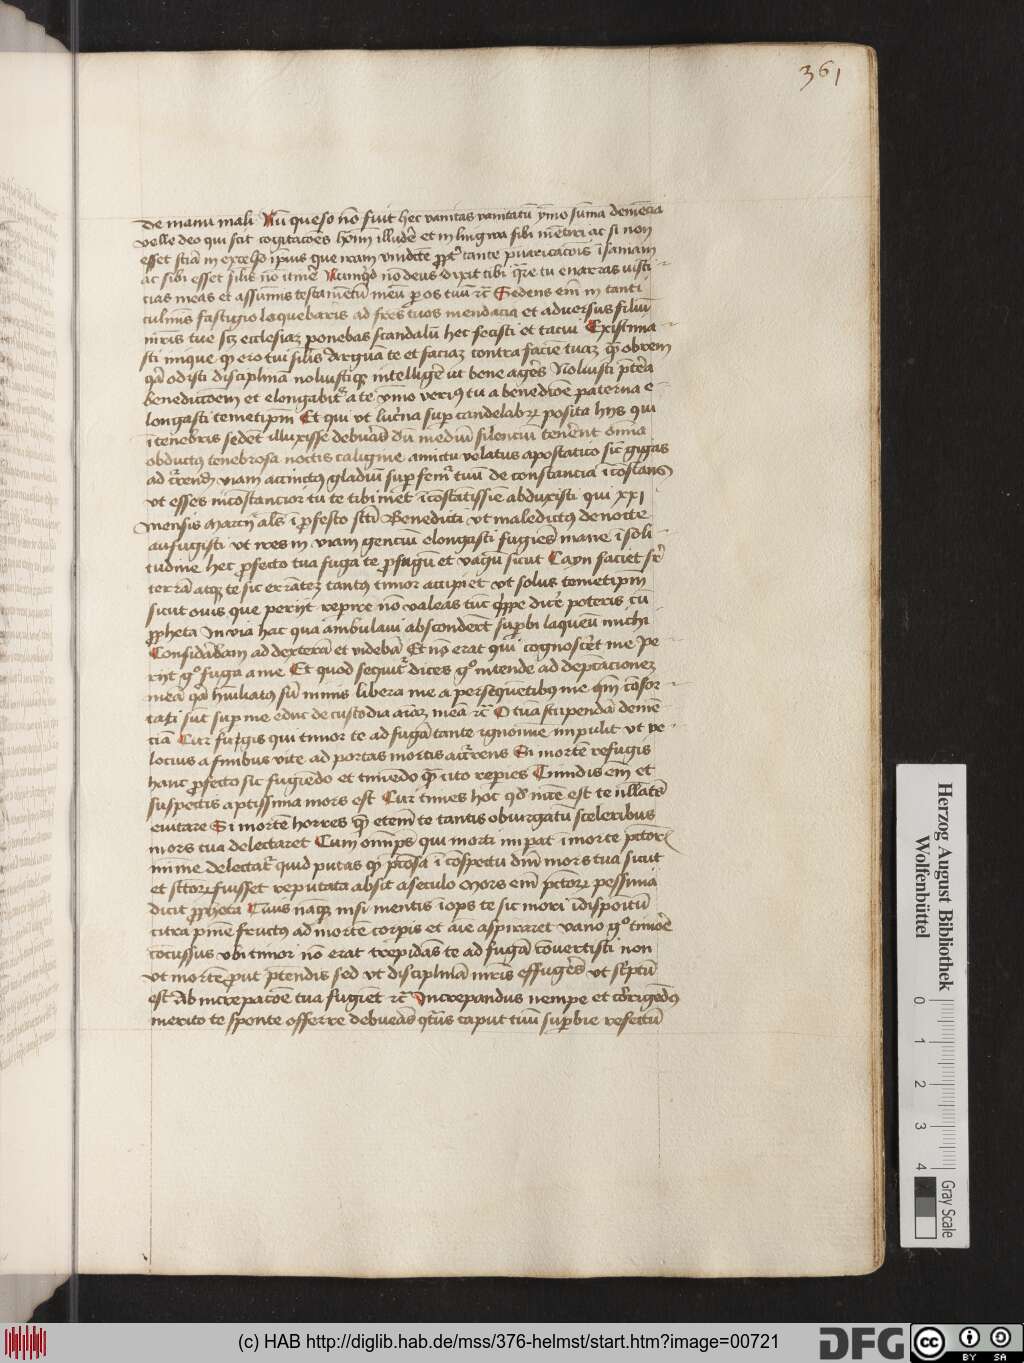 361
De manu mali Nū queso nō fuit hec vanitas vanitatū ymo sūma demēcia
velle deo qui scit cogitacōes hōīm illudē et in lingwa sibi mētiri ac si non
esset sciā in excelso
ac sibi esset silis nō timē Nūquid nō deus dixit tibi q̄re tu enarras iusti
cias meas et assumis testamētū meū p os tuū rc̄ Sedens em̄ in tanti
culminis fastigio loquebaris ad fr̄es tuos mendacia et adversus filiū
mr̄is tue scz ecclesiaz ponebas scandalū hec fecisti et tacui Existima
sti inique qz ero tui silis Arguā te et faciaz contra faciē tuaz
qz odisti disciplinā noluistiqz intelligē ut bene agēs Noluisti
benedictōem et elongabit' a te ymo verius tu a benedictōe paterna e
longasti temetipm Et qui ut lucerna sup candelabrū posita hijs qui
ī tenebris sedēt illuxisse debuerās dū mediū silenciū tenēret omīa
obductus tenebrosa noctis caligine amictu velatus apostatico sic gigas
ad viam accinctus gladiū sup femr' tuū de constancia īcōstans
ut esses incōstancior tu te tibimet īcōstātissie abduxisti qui xxi
mensis marcij als ī pfesto sc̄ti Benedicti ut maledictus de nocte
aufugisti ut ires in viam genciū elongasti fugiēs mane ī soli
tudine hec pfecto tua fuga te pfugū et vagū sicut Cayn faciet sr̄
terrā atqz te sic errātez tantus timor accipiet ut solus temetipm
sicut ovis que perijt repire nō valeas tūc dicē poteris cū
ppheta In via hac qua ambulavi absconderūt supbi laqueū michi
Considerabam ad dexterā et videbā Et nō erat qui cognoscēt me Pe
rijt g° fuga a me Et quod sequit' dices g° intende ad deprecacionez
meā qz hūiliatus sū nimis libera me a persequētibus me qm̄ cōfor
tati sūt sup me educ de custodia aīaz meā rc̄ O tuā stupendā demē
ciā Cur fugis qui timor te ad fugā tante ignomīe impulit ut ve
locius a finibus vite ad portas mortis accurrens Si mortē refugis
hanc pfecto sic fugiēdo et timēdo cito repies Timidis em̄ et
suspectis aptissima mors est Cur times hoc qd
evitare Si mortē horres te tantis obiurgatū sceleribus
mors tua delectaret Cum om̄ps qui morti impat ī morte pctorū
minime delectat' quid putas qz p̄ciosa ī cōspectu dnī mors tua sicut
et sctorū fuisset reputata absit a seculo Mors em̄ pctorū pessima
dicit ppheta Cuius nāqz nisi mentis īops te sic mori īdispoitū
citra pnīe fructus ad mortē corpis et aīe aspiraret vano g° timōē
cōcussus ubi timor nō erat trepidās te ad fugā cōvertisti non
ut mortē prout p̄tendis sed ut disciplinā mr̄is effugēs ut sc̄ptū
est Ab increpacōe tua fugiēt rc̄ Increpandus nempe et corrigēdus
merito te sponte offerre debueās qten' caput tuū supbie refectū
Herzog August Bibliothek
Wolfenbüttel
0 1 2 3 4
Gray Scale
(c) HAB http://diglib.hab.de/mss/376-helmst/start.htm?image=00721
DFG
cc
BY SA